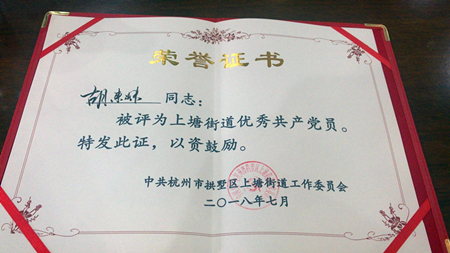 荣誉证书
胡 同志：
被评为上塘街道优秀共产党员。
特发此证，以资鼓励。
中共杭州市拱墅区上塘街道工作委员会
二〇一八年七月